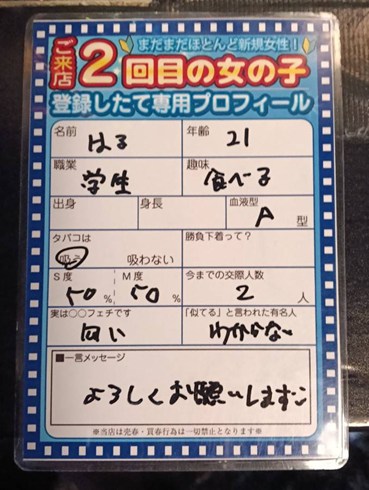 まだまだほとんど新規女性！
ご来店2回目の女の子
登録したて専用プロフィール
名前 はる 年齢 21
職業 学生 趣味 食べる
出身 身長 血液型 A 型
タバコは 吸う 吸わない 勝負下着って？
S度 50% M度 50% 今までの交際人数 2人
実は○○フェチです 匂い 「似てる」と言われた有名人 わからない
■一言メッセージ
よろしくお願いします
※当店は売春・買春行為は一切禁止となります※